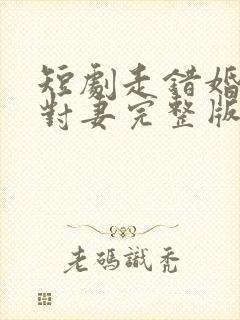 短劇走錯婚
對妻完整版
老碼識禿